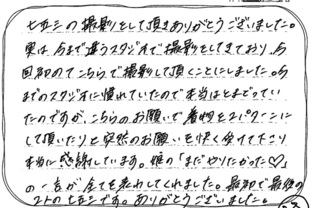 七五三の撮影をして頂きありがとうございました。
実は今まで違うスタジオで撮影をしてきており、今
回初めてこちらで撮影して頂くことにしました。今
までのスタジオに慣れていたので本当はとまどってい
たのですが、こちらのお願いで着物を2パターンに
して頂いたりと突然のお願いを快く受けて下さり
本当に感謝しています。娘の「まだやりたかった♡」
の一言が全てを表わしてくれました。最初で最後の
2人の七五三です。ありがとうございました。